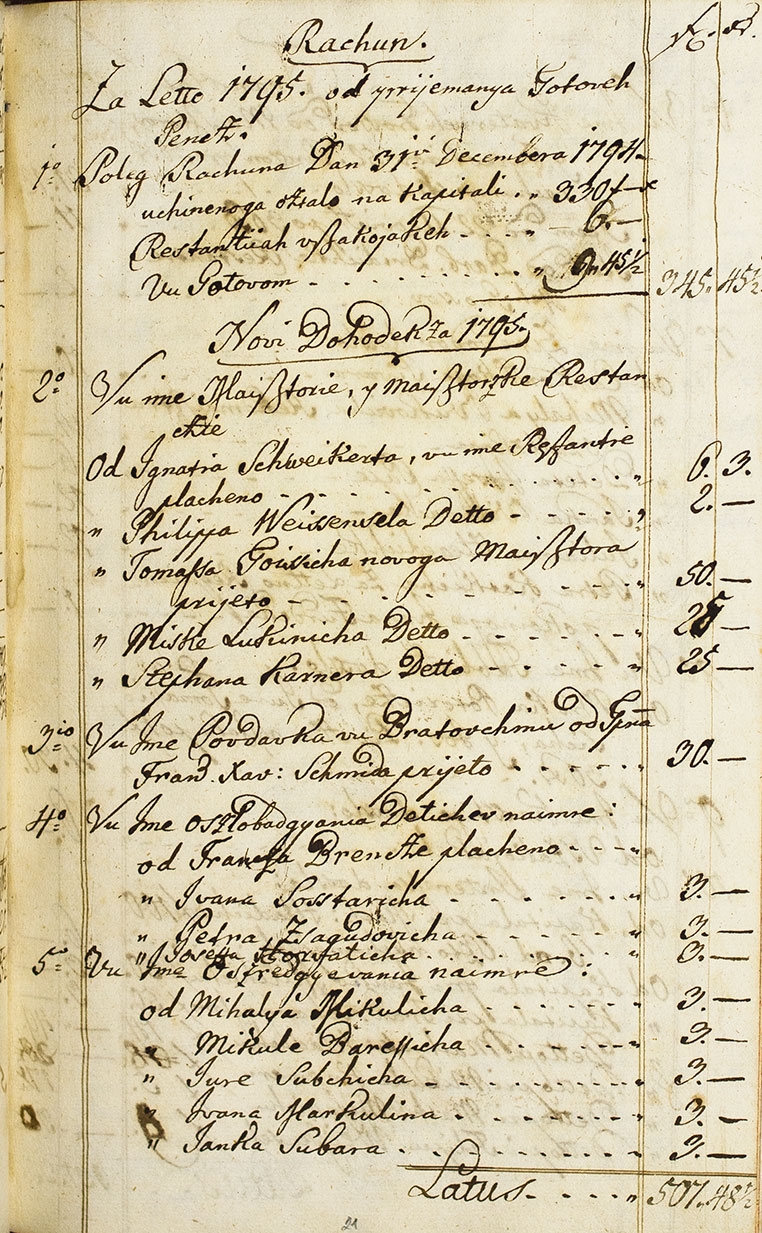 Rachun.
f. xr.
Za Letto 1795. od prijemanya Gotoveh
Penetz.
1o Poleg Rachuna Dan 31ga Decembera 1794
uchinenoga osztalo na Kapitali . „ 330f —x
Restantiah vszakojakeh - - - „ 6. —
Vu Gotovom - - - - - - „ 9„ 45½ 345„ 45½
Novi Dohodek za 1795.
2o Vu ime Maißtorie, y maißtorzke Restan
chie
Od Ignatia Schweikerta, vu ime Restantie
placheno - - - - - - „ 6. 3.
„ Philippa Weissensela Detto - - - - „ 2. —
„ Tomassa Goissicha novoga Maißtora
prijeto - - - - - - „ 50. —
„ Miske Lukinicha Detto - - - - - „ 25 —
„ Stephana Karnera Detto - - - - „ 25 —
3io Vu Ime Povdavka vu Bratovchinu od Gpna
Fran. Xav: Schmida prijeto - - - - „ 30. —
4o Vu Ime oszlobadgyania Detichev naimre:
od Francza Brenche placheno - - - „
„ Ivana Sosstaricha - - - - - „ 3. —
„ Petra Zsagudovicha - - - - - „ 3. —
„ Josefa Horvaticha - - - - - „ 3. —
5o Vu Ime Oszredgyevania naimre:
od Mihalya Mikulicha - - - - - „ 3. —
„ Mikule Baressicha - - - - - „ 3. —
„ Jure Subchicha - - - - - - „ 3. —
„ Ivana Markulina - - - - - „ 3. —
„ Janka Subara - - - - - - „ 3. —
Latus - - - - „ 507„ 48½
21